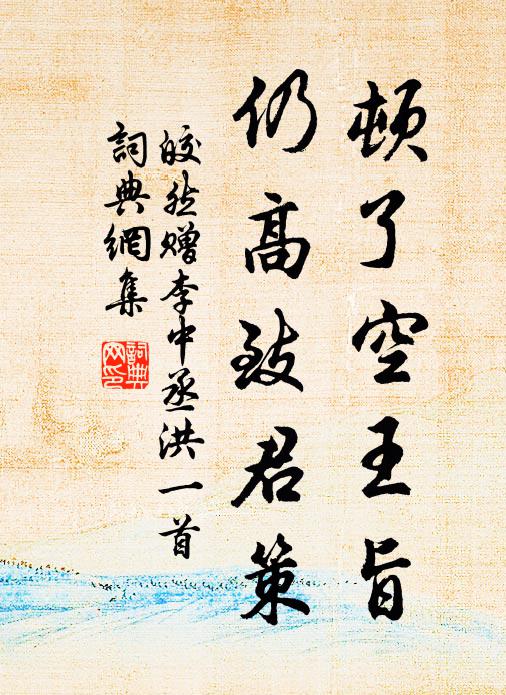 頓了空王旨
仍高致君策
皎然贈李中丞洪一首
詞典網集
詞典
网印